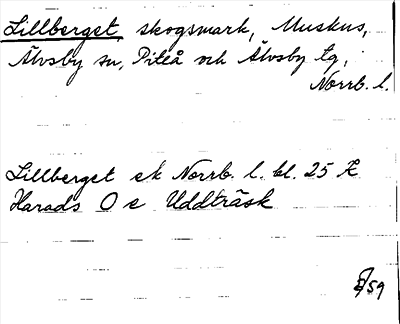 Lillberget, skogsmark, Muskus,
Älvsby sn, Piteå och Älvsby tg,
Norrb. l.
Lillberget ek Norrb. l. bl. 25 K
Harads O e Uddträsk
/59